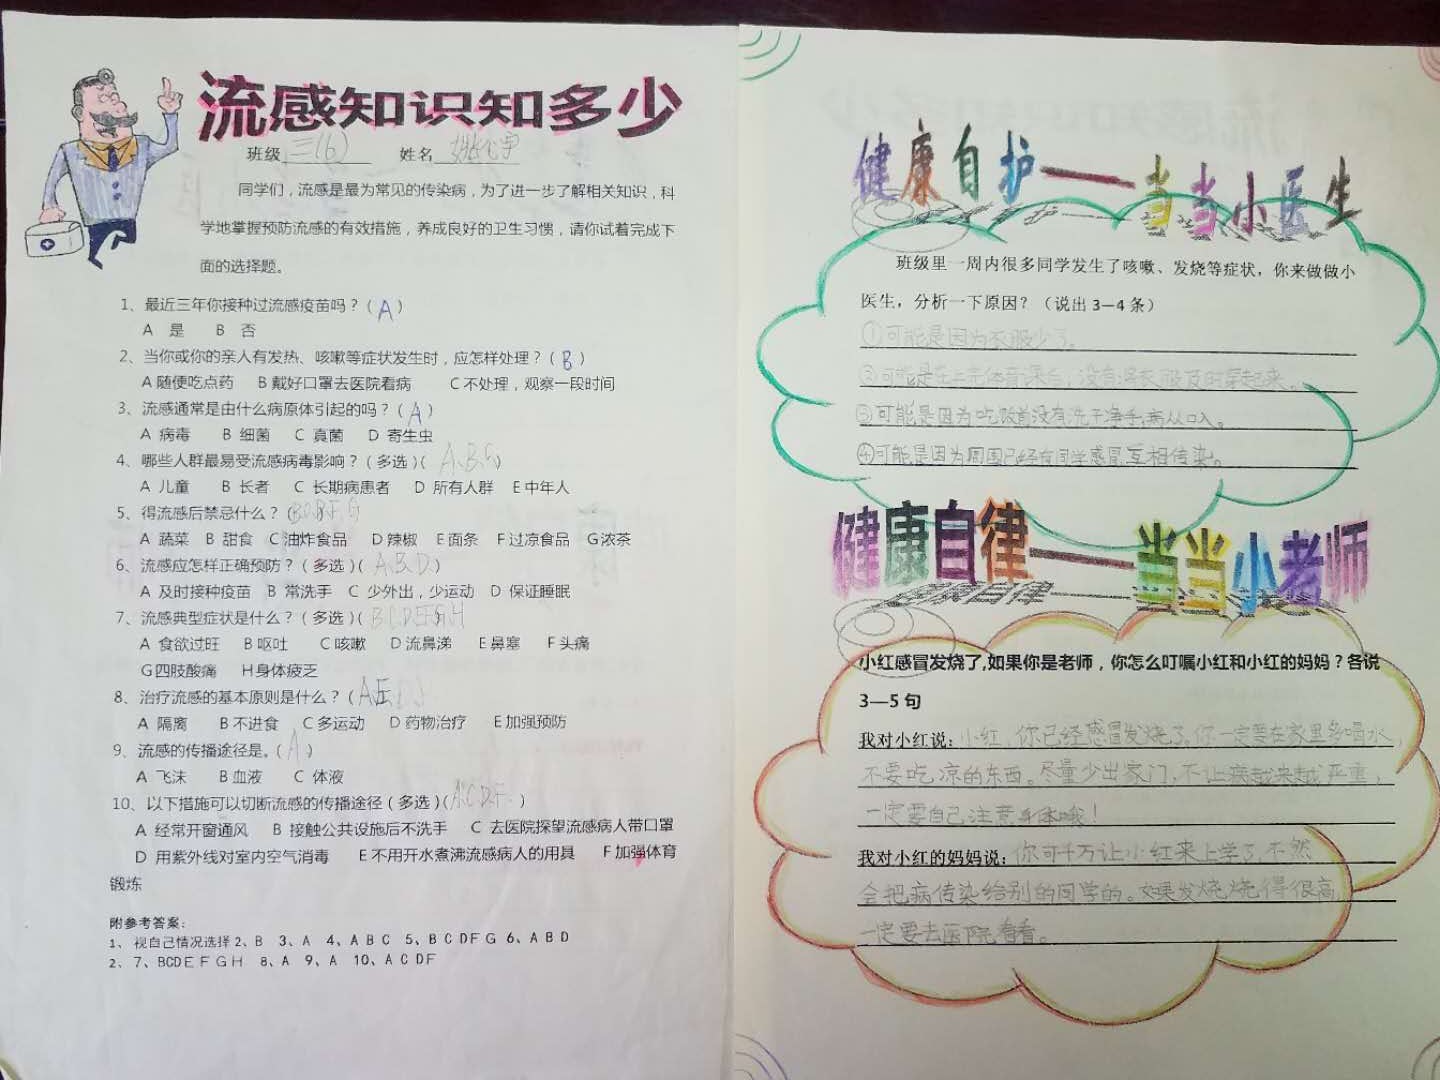 流感知识知多少
班级 三(6) 姓名
同学们，流感是最为常见的传染病，为了进一步了解相关知识，科
学地掌握预防流感的有效措施，养成良好的卫生习惯，请你试着完成下
面的选择题。
1、最近三年你接种过流感疫苗吗？（A）
A 是 B 否
2、当你或你的亲人有发热、咳嗽等症状发生时，应怎样处理？（B）
A 随便吃点药 B 戴好口罩去医院看病 C 不处理，观察一段时间
3、流感通常是由什么病原体引起的吗？（A）
A 病毒 B 细菌 C 真菌 D 寄生虫
4、哪些人群最易受流感病毒影响？（多选）（A、B、C）
A 儿童 B 长者 C 长期病患者 D 所有人群 E 中年人
5、得流感后禁忌什么？（
A 蔬菜 B 甜食 C 油炸食品 D 辣椒 E 面条 F 过凉食品 G 浓茶
6、流感应怎样正确预防？（多选）（A、B、D）
A 及时接种疫苗 B 常洗手 C 少外出，少运动 D 保证睡眠
7、流感典型症状是什么？（多选）（BCDEFGH
A 食欲过旺 B 呕吐 C 咳嗽 D 流鼻涕 E 鼻塞 F 头痛
G 四肢酸痛 H 身体疲乏
8、治疗流感的基本原则是什么？（A
A 隔离 B 不进食 C 多运动 D 药物治疗 E 加强预防
9、流感的传播途径是。（A）
A 飞沫 B 血液 C 体液
10、以下措施可以切断流感的传播途径（多选）（A、C、D、F、）
A 经常开窗通风 B 接触公共设施后不洗手 C 去医院探望流感病人带口罩
D 用紫外线对室内空气消毒 E 不用开水煮沸流感病人的用具 F 加强体育
锻炼
附参考答案：
1、视自己情况选择 2、B 3、A 4、A B C 5、B C D F G 6、A B D
2、7、BCD E F G H 8、A 9、A 10、A C D F
健康自护——当当小医生
班级里一周内很多同学发生了咳嗽、发烧等症状，你来做做小
医生，分析一下原因？（说出 3—4 条）
①可能是因为衣服少了。
②可能是在上完体育课后，没有将衣服及时穿起来。
③可能是因为吃饭前没有洗干净手，病从口入。
④可能是因为周围已经有同学感冒，互相传染。
健康自律——当当小老师
小红感冒发烧了,如果你是老师，你怎么叮嘱小红和小红的妈妈？各说
3—5 句
我对小红说：小红，你已经感冒发烧了。你一定要在家里多喝水，
不要吃凉的东西。尽量少出家门，不让病越来越严重，
一定要自己注意身体哦！
我对小红的妈妈说：你可千万让小红来上学了，不然
会把病传染给别的同学的。如果发烧烧得很高，
一定要去医院看看。